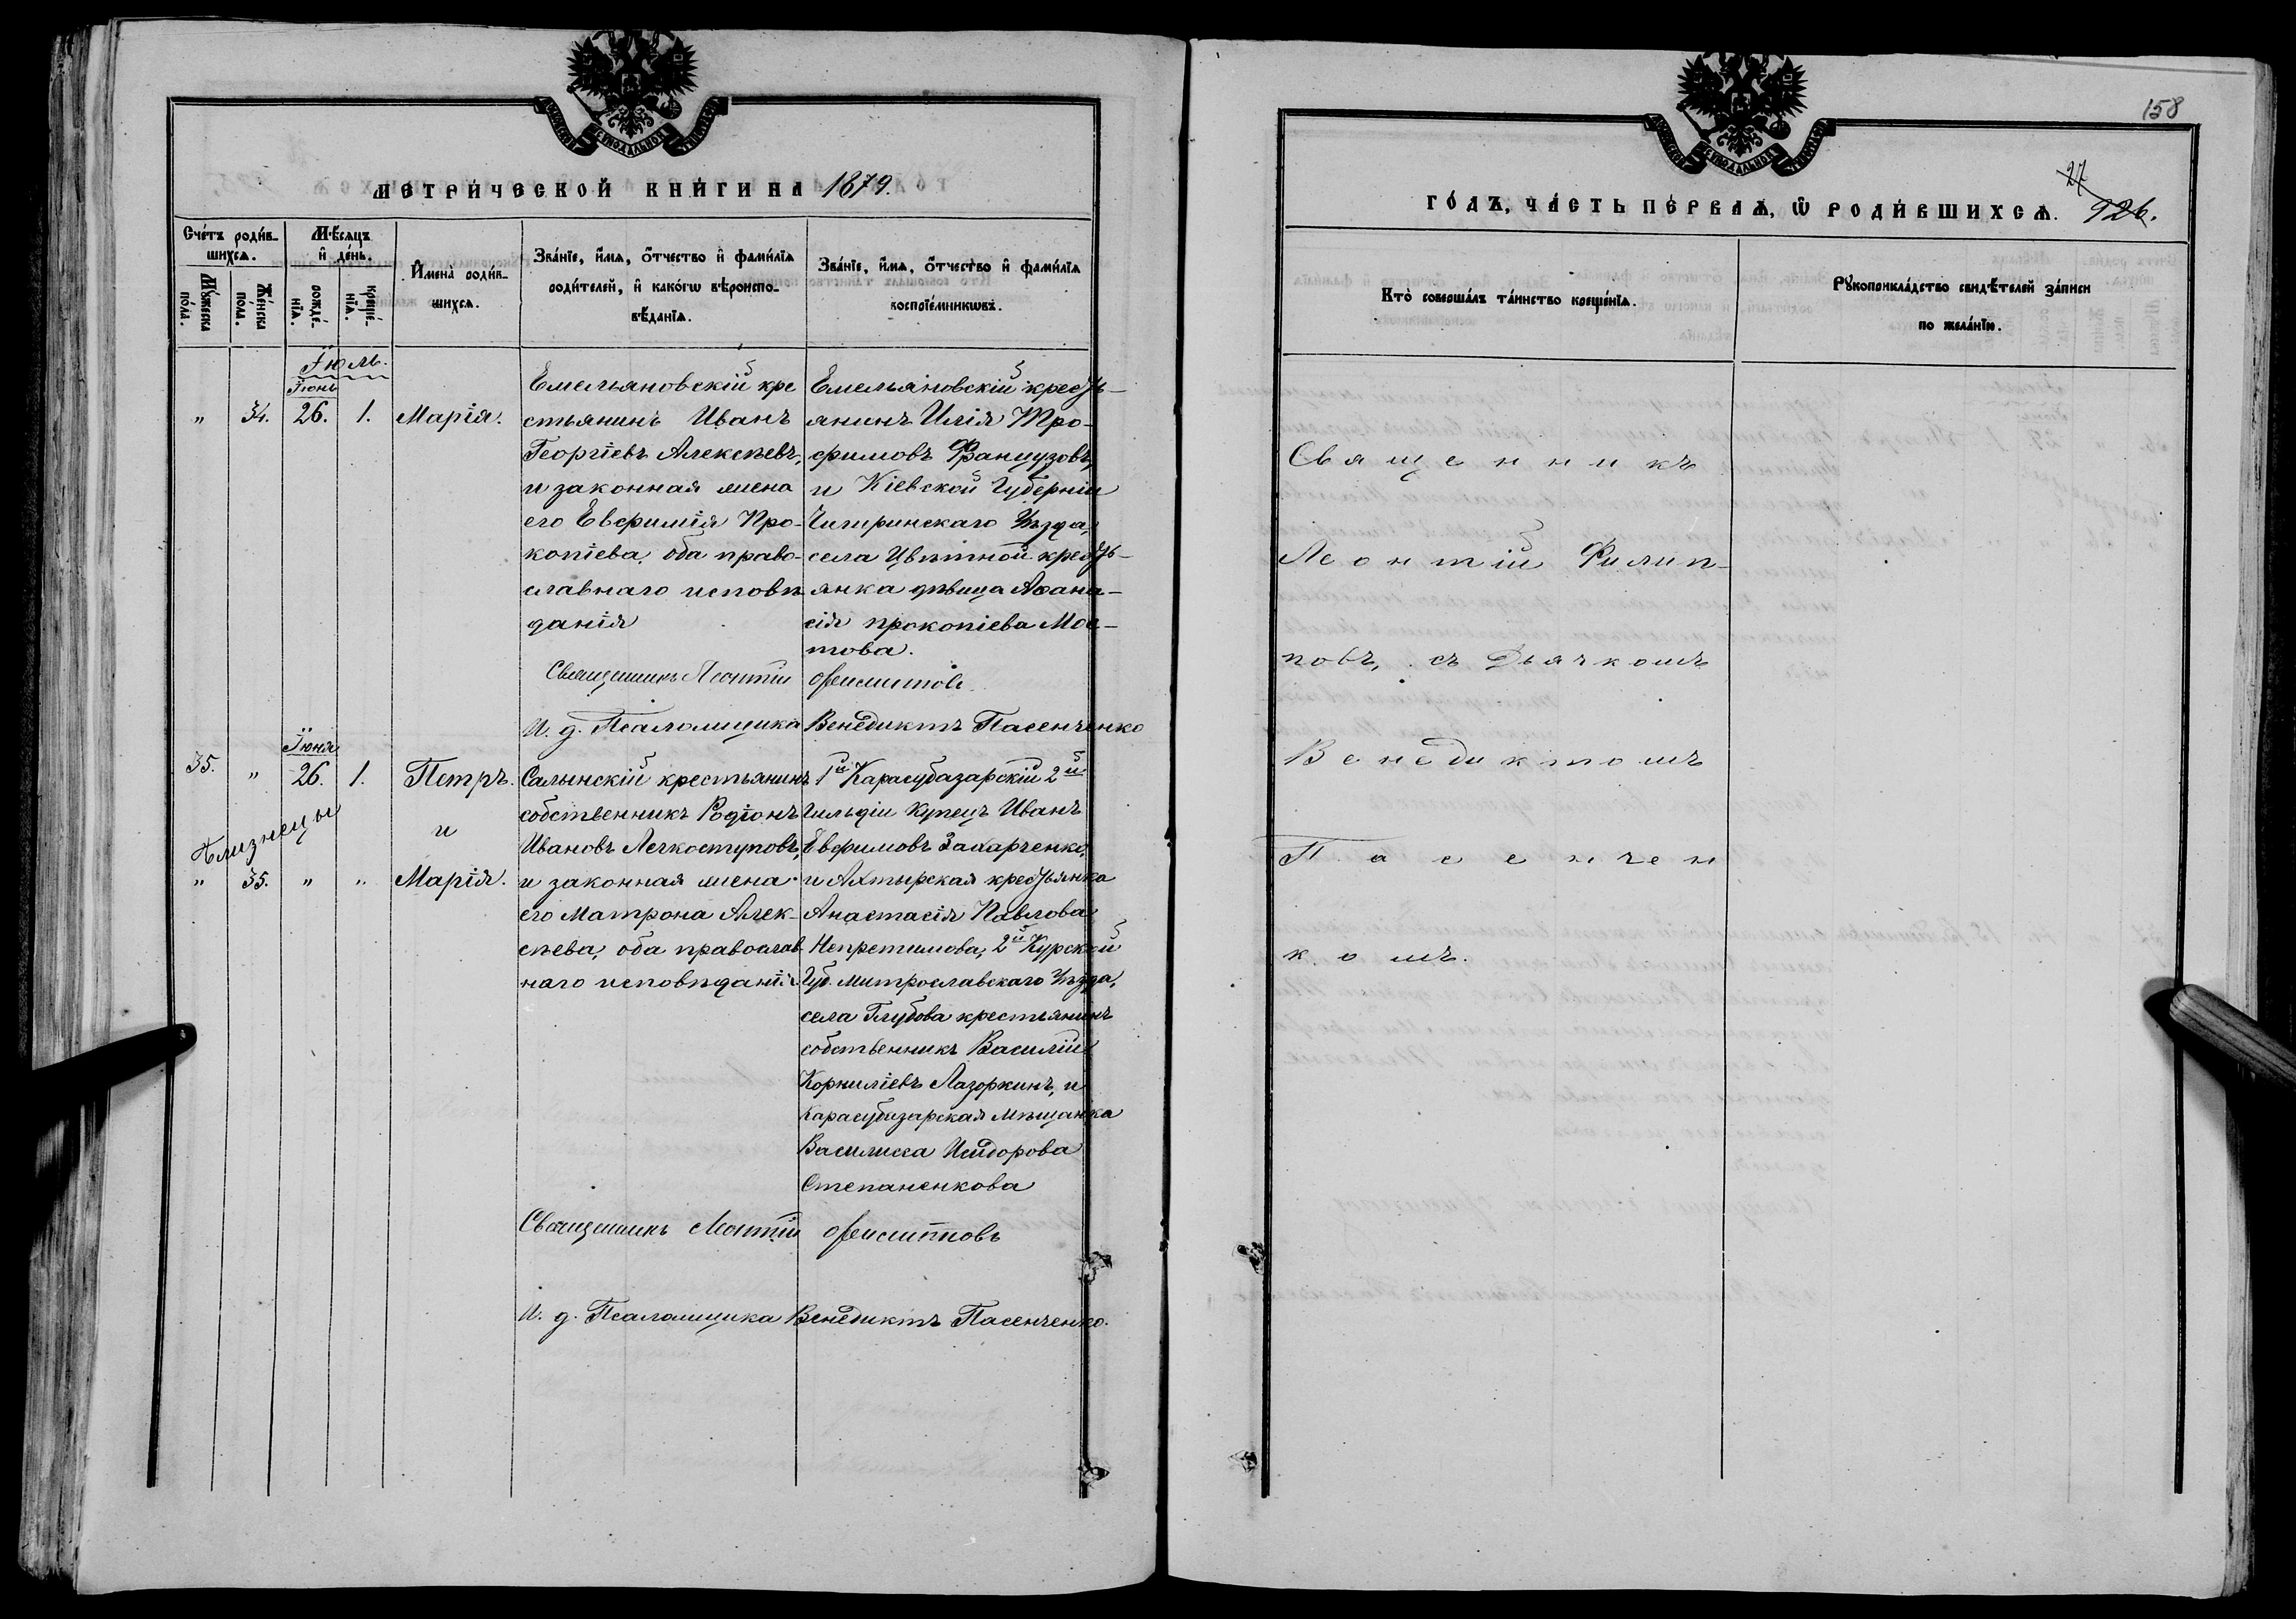 МЕТРИЧЕСКОЙ КНИГИ НА 1879.
Счетъ родив-
шихся.
Мужеска пола.
Женска пола.
Мѣсяцъ и день.
рожде-
нія.
креще-
нія.
Имена родив-
шихся.
Званіе, имя, отчество и фамилія
родителей, и какого вѣроиспо-
вѣданія.
Званіе, имя, отчество и фамилія
воспріемниковъ.
Іюль.
Іюнь
„ 34. 26. 1. Марія.
Емельяновскій кре
стьянинъ Иванъ
Георгіевъ Алексѣевъ,
и законная жена
его Евфимія Про-
копіева, оба право-
славнаго исповѣ
данія
Емельяновскій кресть-
янинъ Илія Тро-
фимовъ Фанцузовъ,
и Кіевской Губерніи
Чигиринскаго Уѣзда,
села Цвѣтной кресть-
янка дѣвица Афана-
сія прокопіева Мос-
това.
Священникъ Леонтій Филипповъ
И. д. Псаломщика Венедиктъ Пасенченко
Іюня
35. „ 26. 1. Петръ.
и
Близнецы
„ 35. „ „ Марія.
Салынскій крестьянинъ
собственникъ Родіонъ
Ивановъ Легкоступовъ,
и законная жена
его Матрона Алек-
сѣева, оба православ
наго исповѣданія.
1й Карасубазарскій 2й
Гильдіи Купецъ Иванъ
Евфимовъ Захарченко,
и Ахтырская крестьянка
Анастасія Павлова
Непретимова, 2й Курской
Губ. Митрославскаго Уѣзда,
села Глубова крестьянинъ
собственникъ Василій
Корниліевъ Лазоркинъ, и
Карасубазарская Мѣщанка
Василисса Исидорова
Степаненкова
Священникъ Леонтій Филипповъ
И. д. Псаломщика Венедиктъ Пасенченко.
158
ГОДЪ, ЧАСТЬ ПЕРВАЯ, Ѿ РОДИВШИХСЯ. 27
126.
Кто совершалъ таинство крещенія.
Рукоприкладство свидѣтелей записи
по желанію.
Священникъ
Леонтій Филип-
повъ, съ Дьячкомъ
Венедиктомъ
Пасенчен
комъ.